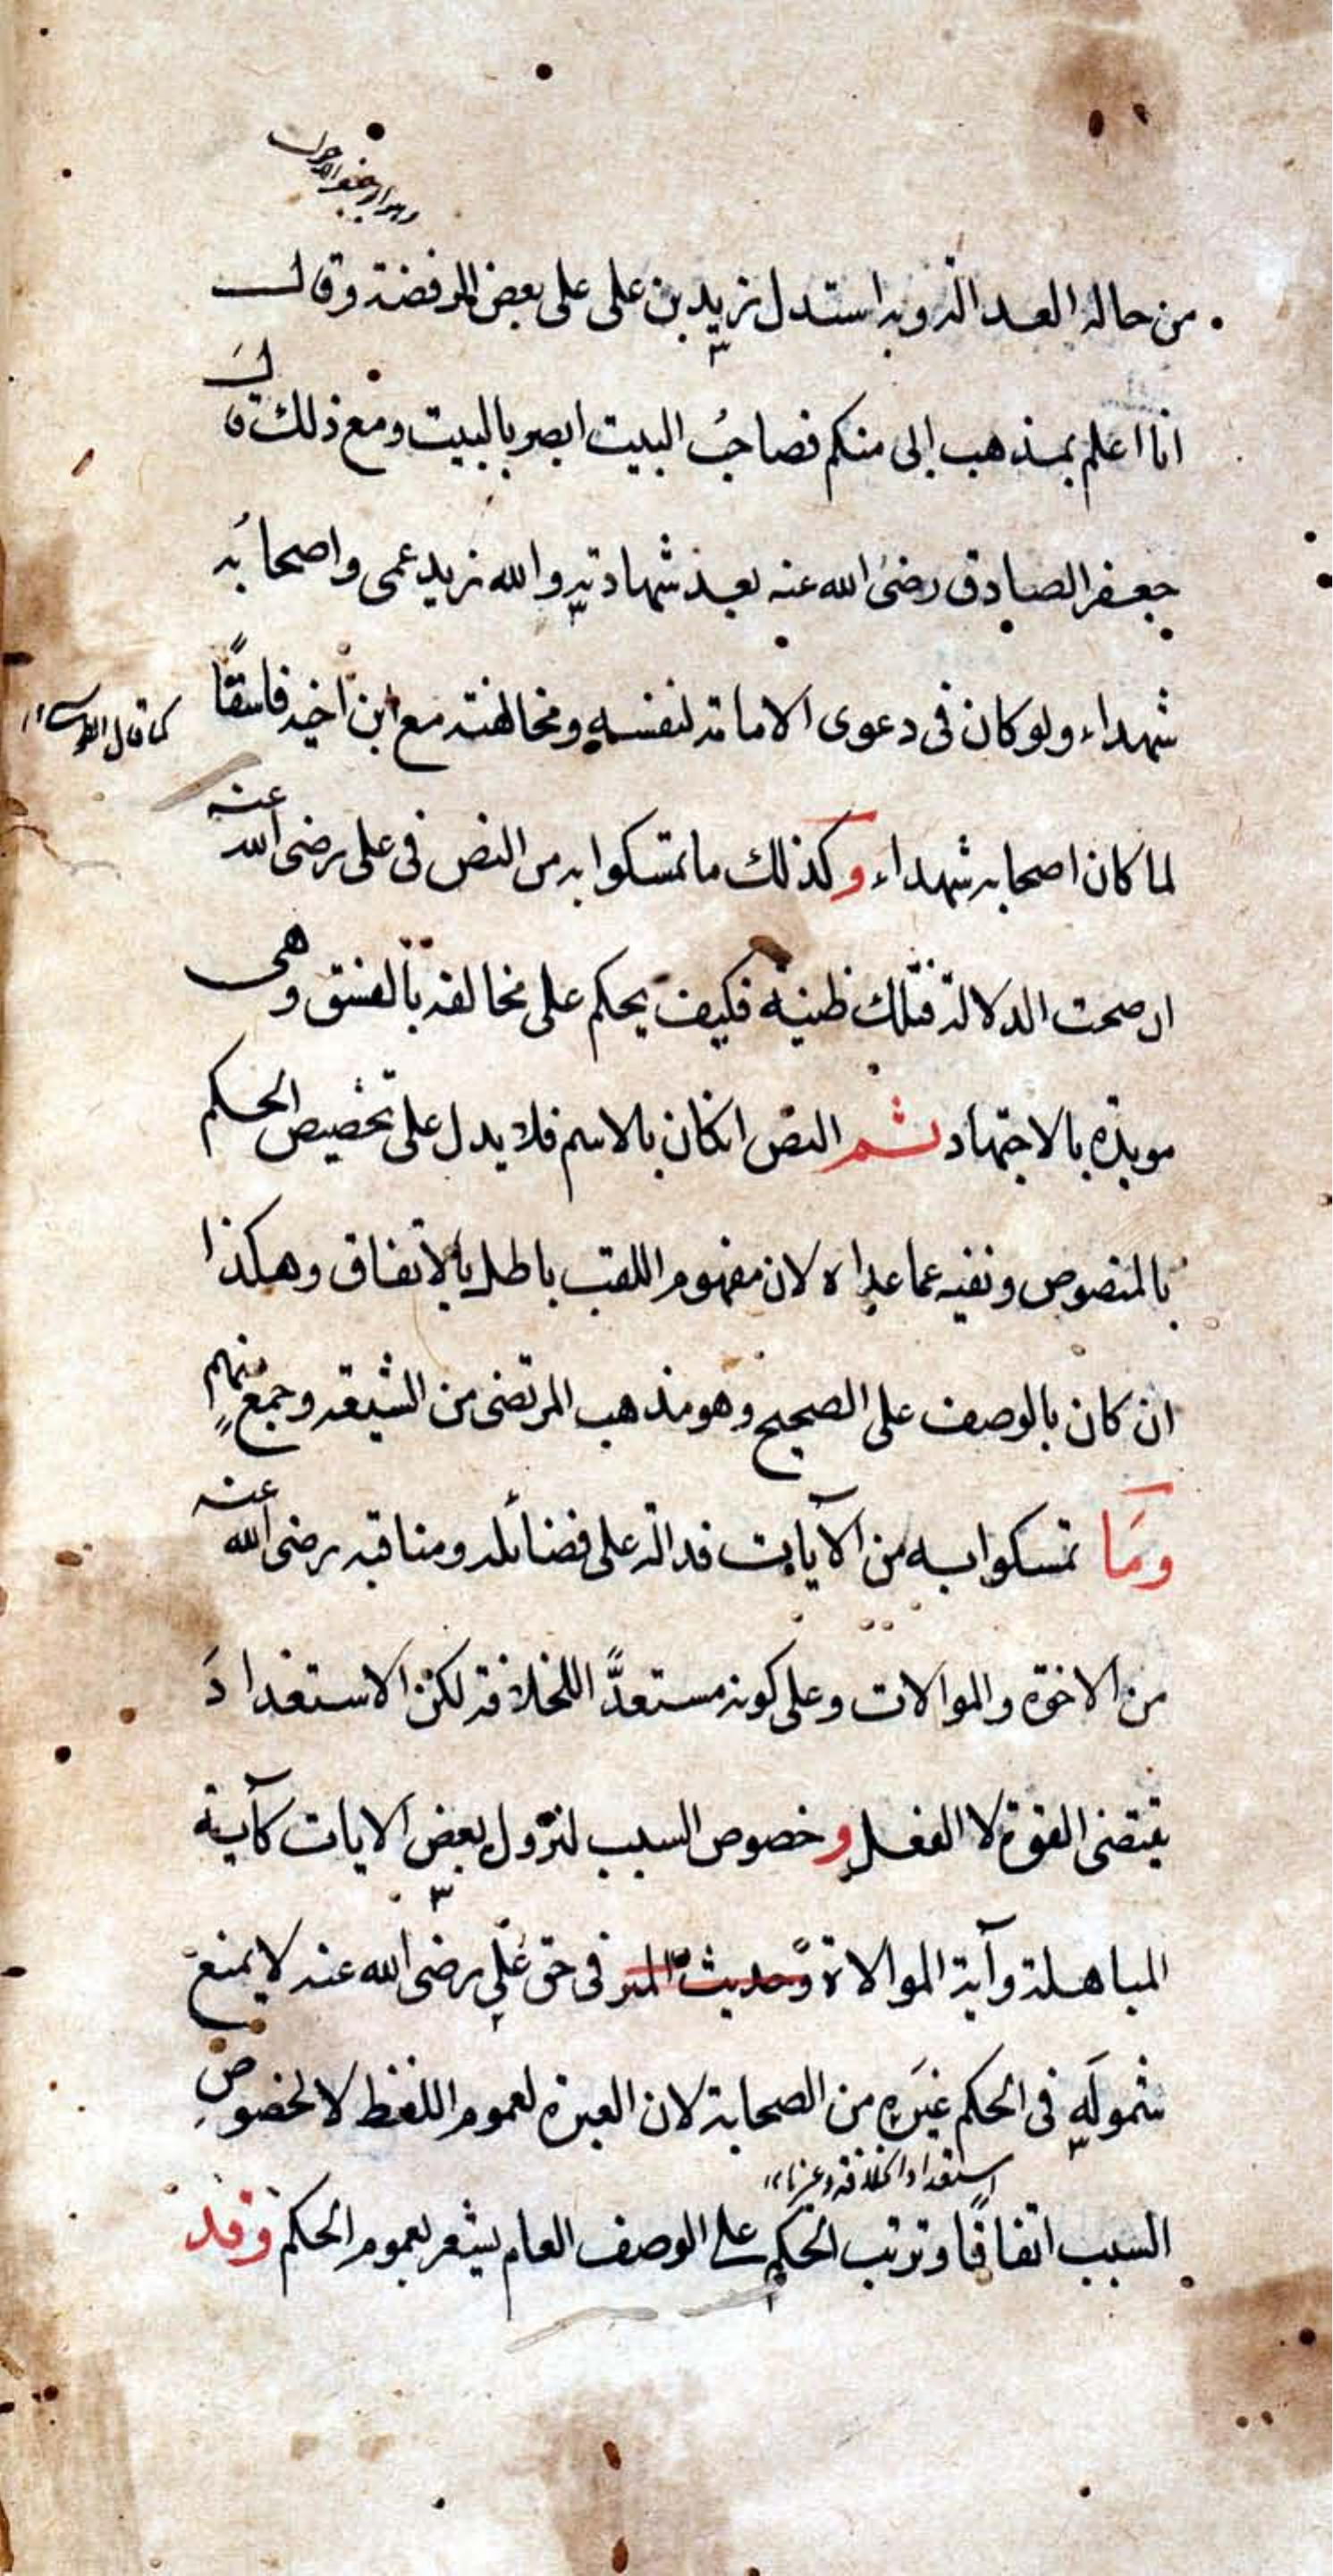 من حاله العدالة وبه استدل زيد بن على على بعض الرفضة وقال
انا اعلم بمذهب ابى منكم فصاحبُ البيت ابصر بالبيت ومع ذلك قال
جعفر الصادق رضى الله عنه بعد شهادته والله زيد عمى واصحابُه
شهداء ولو كان فى دعوى الامامة لنفسه ومخالفته مع ابن اخيه فاسقًا
كما قال
لما كان اصحابه شهداء وكذلك ما تمسكوا به من النص فى على رضى الله عنه
ان صحت الدلالة فتلك ظنية فكيف يحكم على مخالفه بالفسق وهى
مويدة بالاجتهاد ثم النص انكان بالاسم فلا يدل على تخصيص الحكم
بالمنصوص ونفيه عما عداه لان مفهوم اللقب باطل بالاتفاق وهكذا
ان كان بالوصف على الصحيح وهو مذهب المرتضى من الشيعة وجمعٍ منهم
وما تمسكوا به من الآيات فدالة على فضائله ومناقبه رضى الله عنه
من الاخوة والموالات وعلى كونه مستعدًّا للخلافة لكن الاستعدادَ
يقتضى القوة لا الفعل وخصوص السبب لنزول بعض الايات كآية
المباهلة وآية الموالاة وحديث المنبر فى حق على رضى الله عنه لا يمنع
شمولَه فى الحكم غيرَه من الصحابة لان العبرة لعموم اللفظ لا لخصوصِ
استعداد الخلافة وغيرها
السبب اتفاقًا وترتب الحكم على الوصف العام يشعر بعموم الحكم وقد